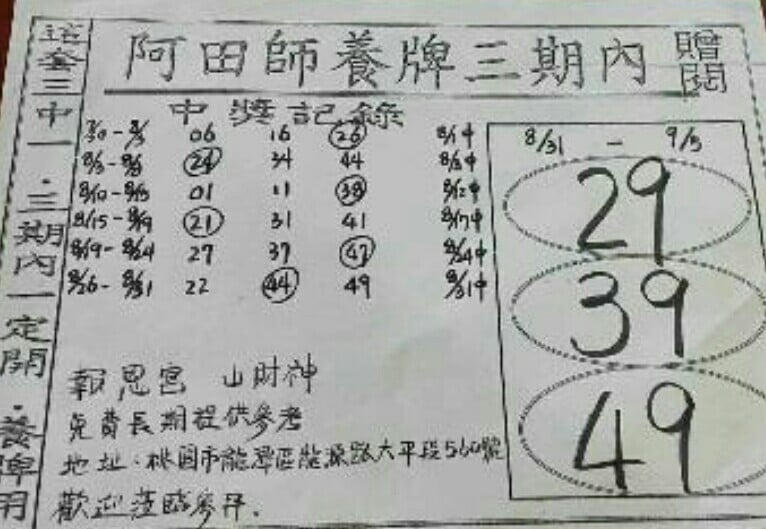 阿田師養牌三期內
贈閱
這套三中一.三期內一定開.養牌用
中獎記錄
7/30-8/3 06 16 26 8/1中
8/3-8/8 24 34 44 8/8中
8/10-8/15 01 11 38 8/12中
8/15-8/19 21 31 41 8/17中
8/19-8/24 27 37 47 8/24中
8/26-8/31 22 44 49 8/31中
8/31 - 9/5
29
39
49
報恩宮 山財神
免費長期提供參考
地址.桃園市龍潭區龍源路大平段560號
歡迎蒞臨參拜.